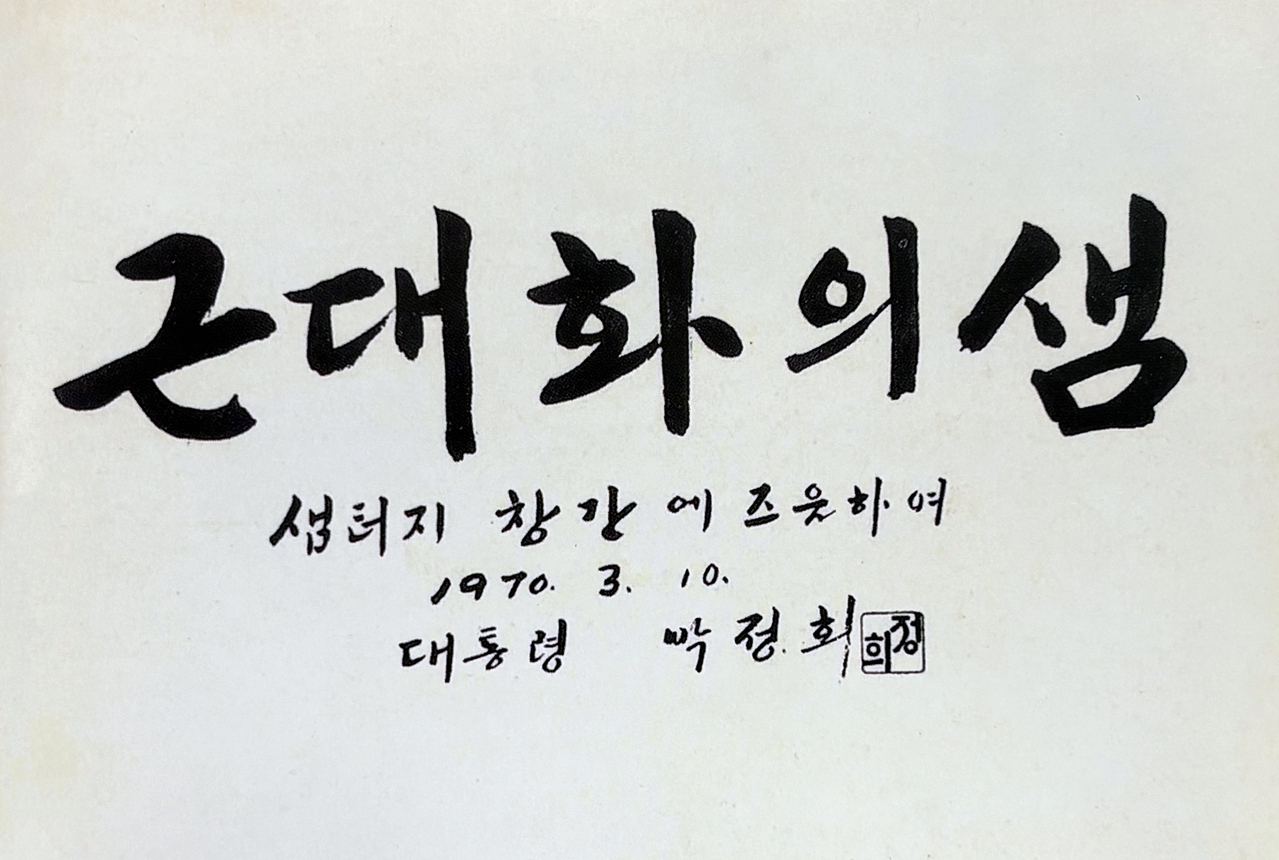 근대화의 샘
샘터지 창간에 즈음하여
1970. 3. 10.
대통령 박정희 정희